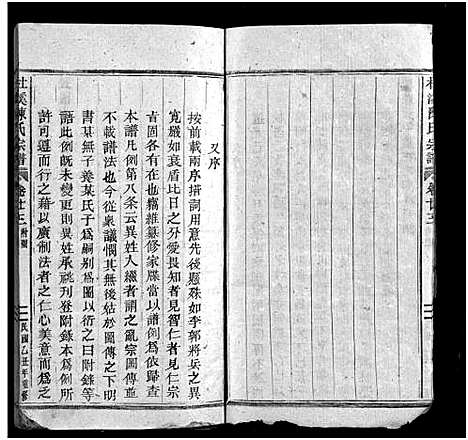 杜溪陳氏宗譜
卷廿三
又序
按前載兩序措詞用意先後懸殊如李郭將兵之異
寬嚴如衰盾比日之分愛畏一間見智仁者見仁宗
旨固各有在也竊維纂修家牒當以譜例為依歸查
本譜凡例第八條云異姓人繼者謂之亂宗圖傳並
不載譜法也今從衆議憫其無後姑於圖傳之下明
書某無子養某氏子為嗣別為圖以衍之曰附錄等
語此例既未變更則異姓承祧刊登附錄本為例所
許可遵而行之藉以廣制法者之仁心美意而為之
杜溪陳氏宗譜
卷廿三
附錄
民國乙丑年重修